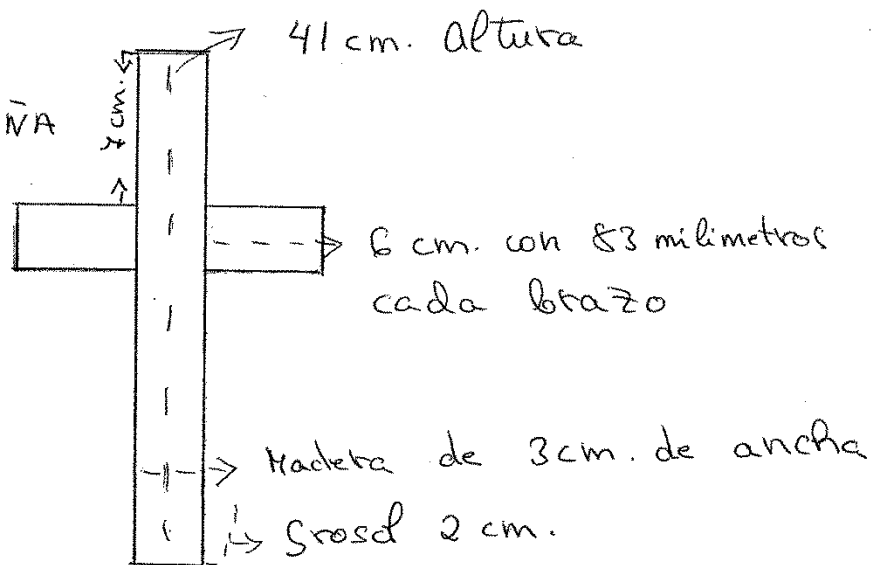 41 cm. altura
ÑA
7 cm.
6 cm. con 83 milimetros
cada brazo
Madera de 3cm. de ancha
Grosol 2 cm.